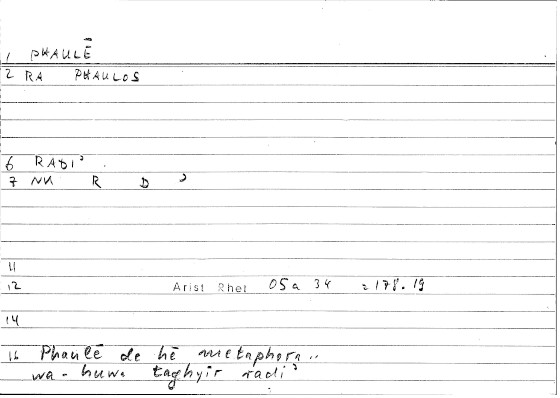 1 PHAULĒ
2 RA PHAULOS
6 RADIʾ
7 NN R D ʾ
11
12 Arist Rhet 05a 34 = 178.19
14
16 Phaulē de hē metaphora..
wa-huwa taghyīr radiʾ